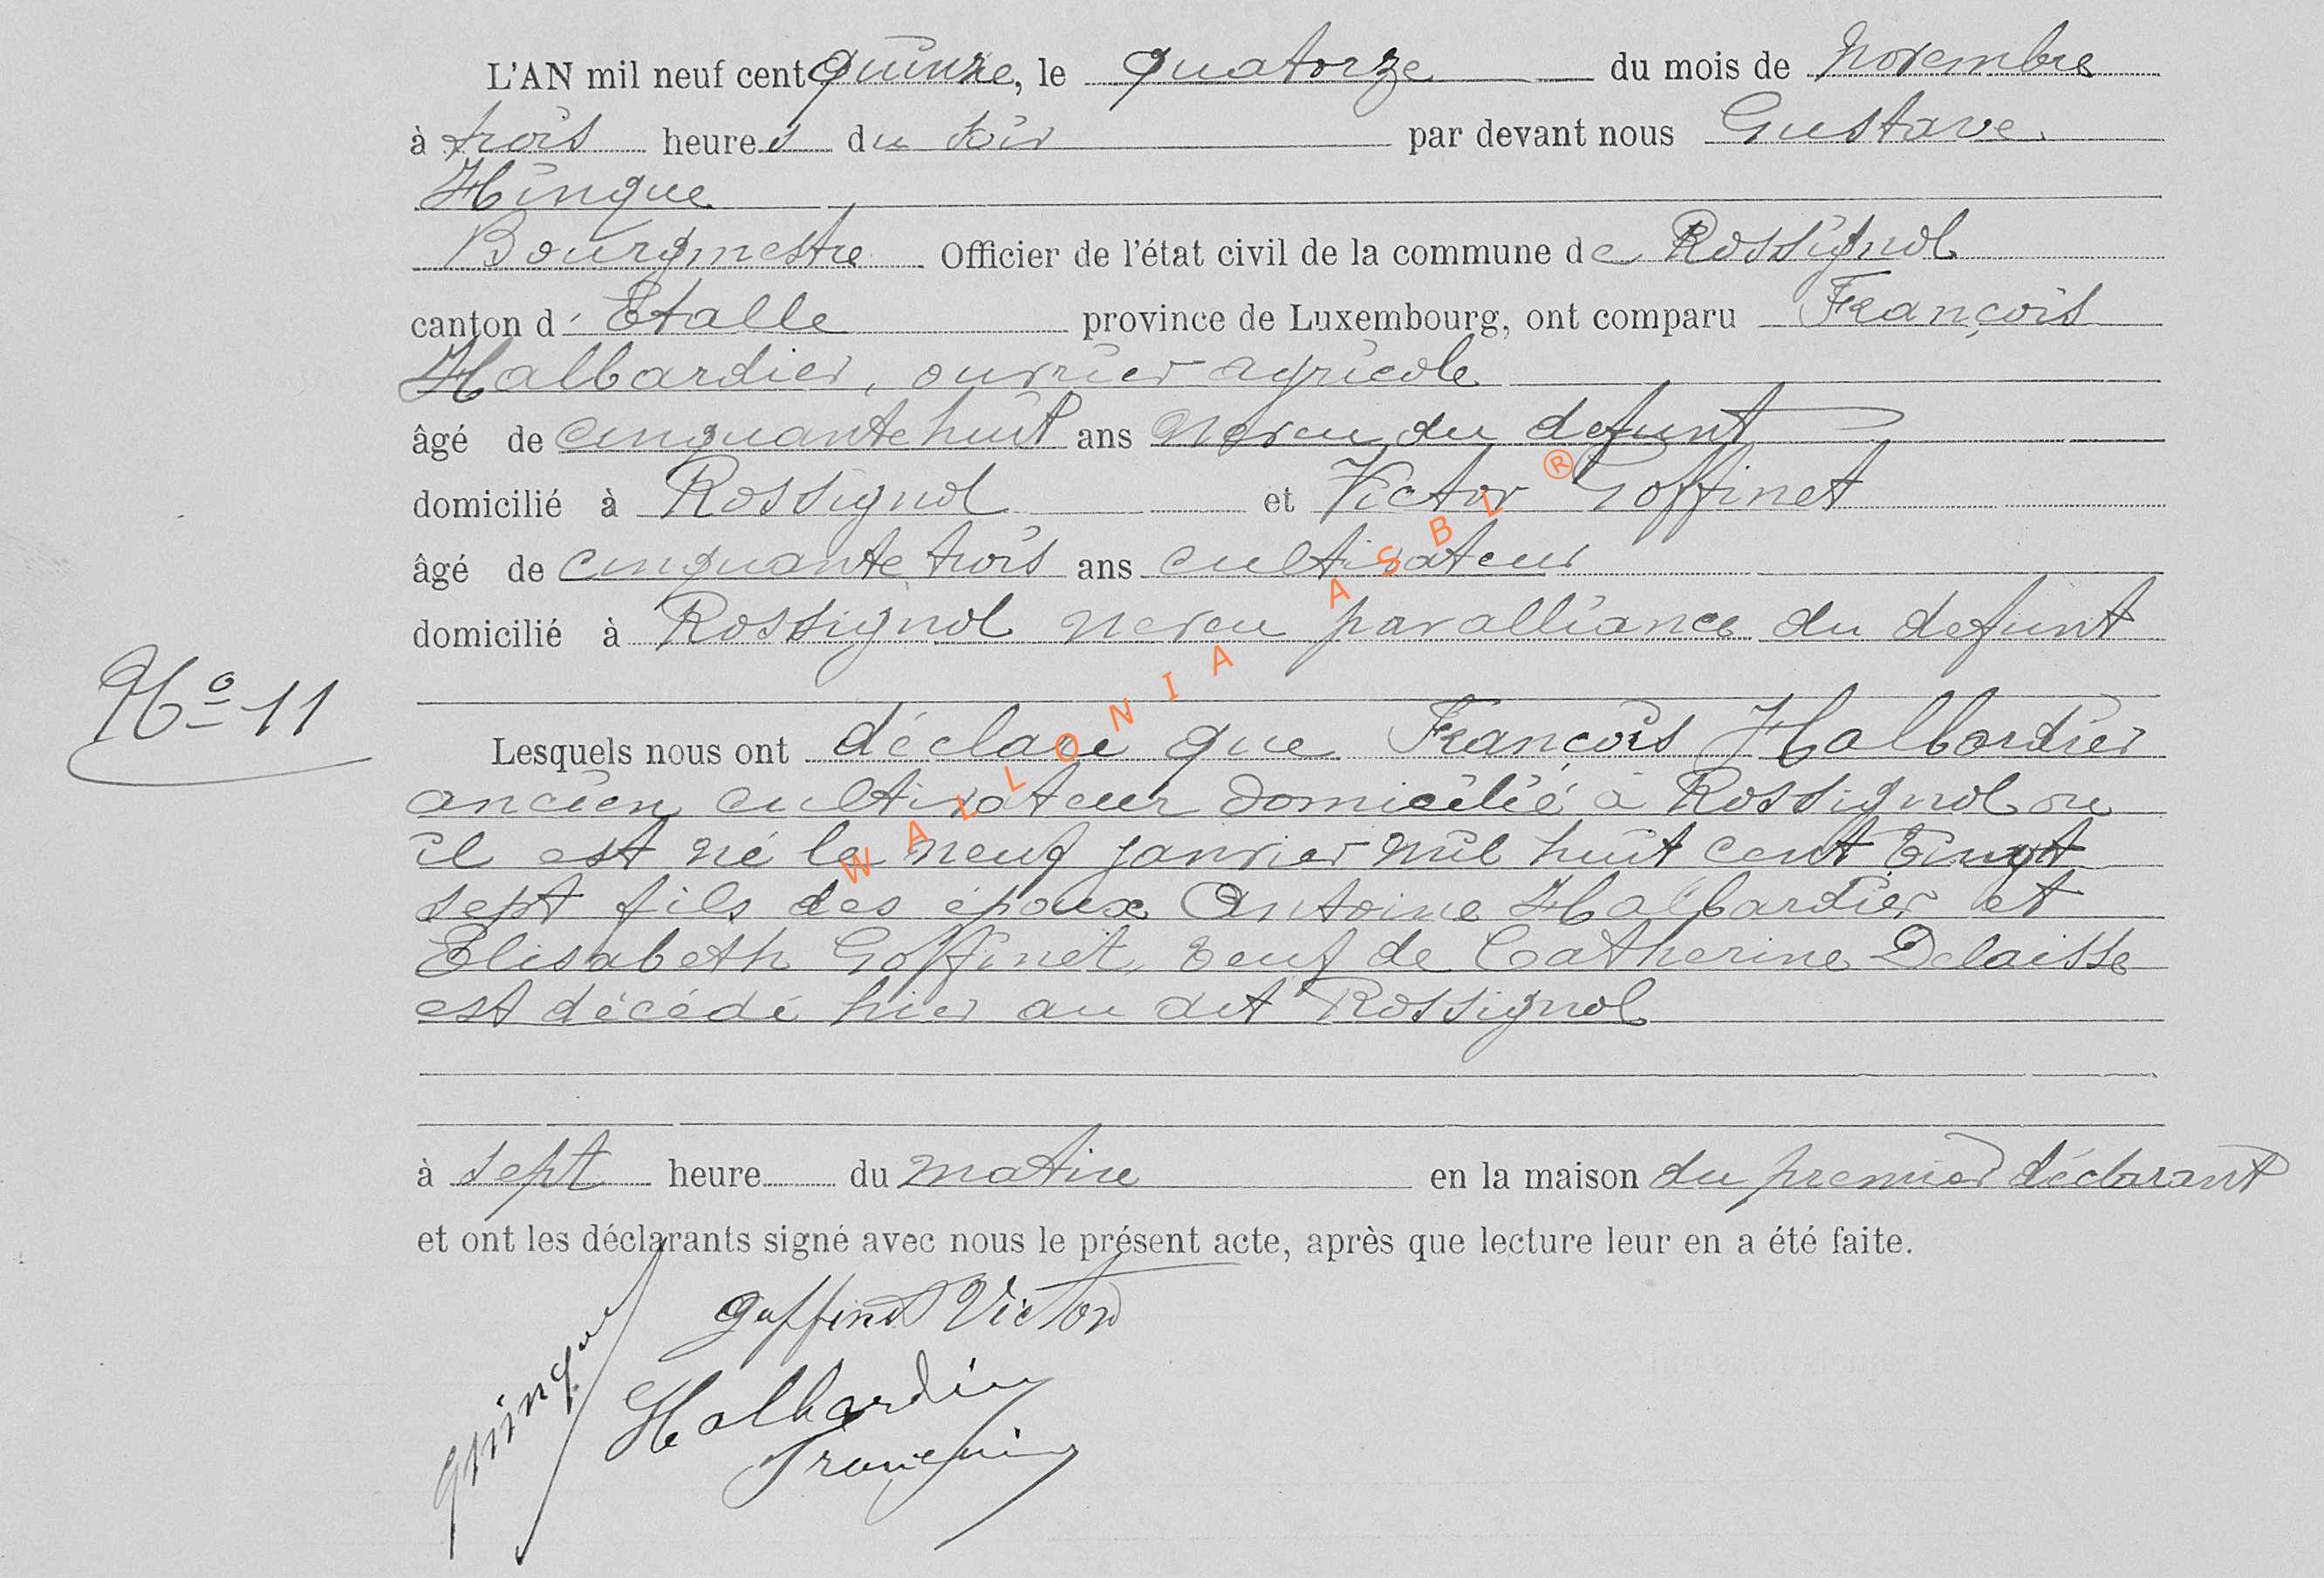 L'AN mil neuf cent quinze, le quatorze du mois de Novembre
à trois heures du soir par devant nous Gustave
Hinque
Bourgmestre Officier de l'état civil de la commune de Rossignol
canton d'Etalle province de Luxembourg, ont comparu François
Halbardier, ouvrier agricole
âgé de cinquante huit ans neveu du defunt
domicilié à Rossignol et Victor Goffinet
âgé de cinquante trois ans cultivateur
domicilié à Rossignol neveu par alliance du defunt
No 11
Lesquels nous ont déclaré que François Halbardier
ancien cultivateur domicilié à Rossignol ou
il est né le neuf janvier mil huit cent vingt
sept fils des époux Antoine Halbardier et
Elisabeth Goffinet, veuf de Catherine Delaisse
est décédé hier au dit Rossignol
à sept heure du matin en la maison du premier déclarant
et ont les déclarants signé avec nous le présent acte, après que lecture leur en a été faite.
Goffinet Victor
Halbardier
François
WALLONIA ASBL ®